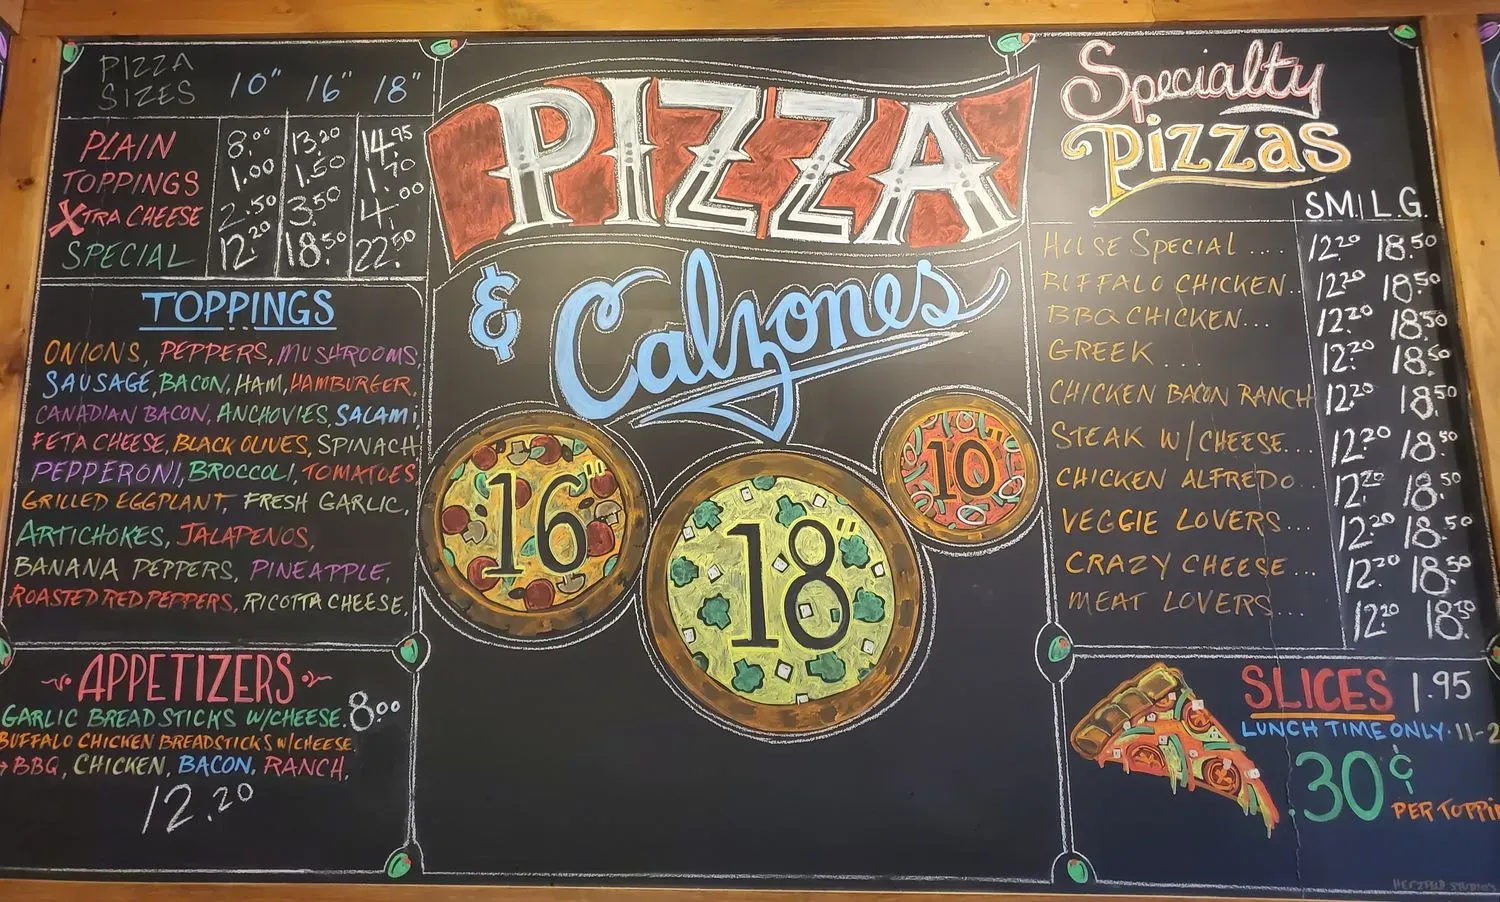 PIZZA
SIZES 10" 16" 18"
PLAIN 8.00 13.20 14.95
TOPPINGS 1.00 1.50 1.70
XTRA CHEESE 2.50 3.50 4.00
SPECIAL 12.20 18.50 22.50
TOPPINGS
ONIONS, PEPPERS, MUSHROOMS,
SAUSAGE, BACON, HAM, HAMBURGER,
CANADIAN BACON, ANCHOVIES, SALAMI,
FETA CHEESE, BLACK OLIVES, SPINACH
PEPPERONI, BROCCOLI, TOMATOES
GRILLED EGGPLANT, FRESH GARLIC,
ARTICHOKES, JALAPENOS,
BANANA PEPPERS, PINEAPPLE,
ROASTED RED PEPPERS, RICOTTA CHEESE,
APPETIZERS
GARLIC BREADSTICKS W/CHEESE. 8.00
BUFFALO CHICKEN BREADSTICKS W/CHEESE.
→BBQ, CHICKEN, BACON, RANCH,
12.20
PIZZA
& Calzones
16"
18"
10"
Specialty
Pizzas
SM. L.G.
HOUSE SPECIAL .... 12.20 18.50
BUFFALO CHICKEN.. 12.20 18.50
BBQ CHICKEN... 12.20 18.50
GREEK ... 12.20 18.50
CHICKEN BACON RANCH 12.20 18.50
STEAK W/CHEESE... 12.20 18.50
CHICKEN ALFREDO.. 12.20 18.50
VEGGIE LOVERS... 12.20 18.50
CRAZY CHEESE... 12.20 18.50
MEAT LOVERS... 12.20 18.50
SLICES 1.95
LUNCH TIME ONLY. 11-2
.30¢
PER TOPPIN
HERZFELD STUDIOS